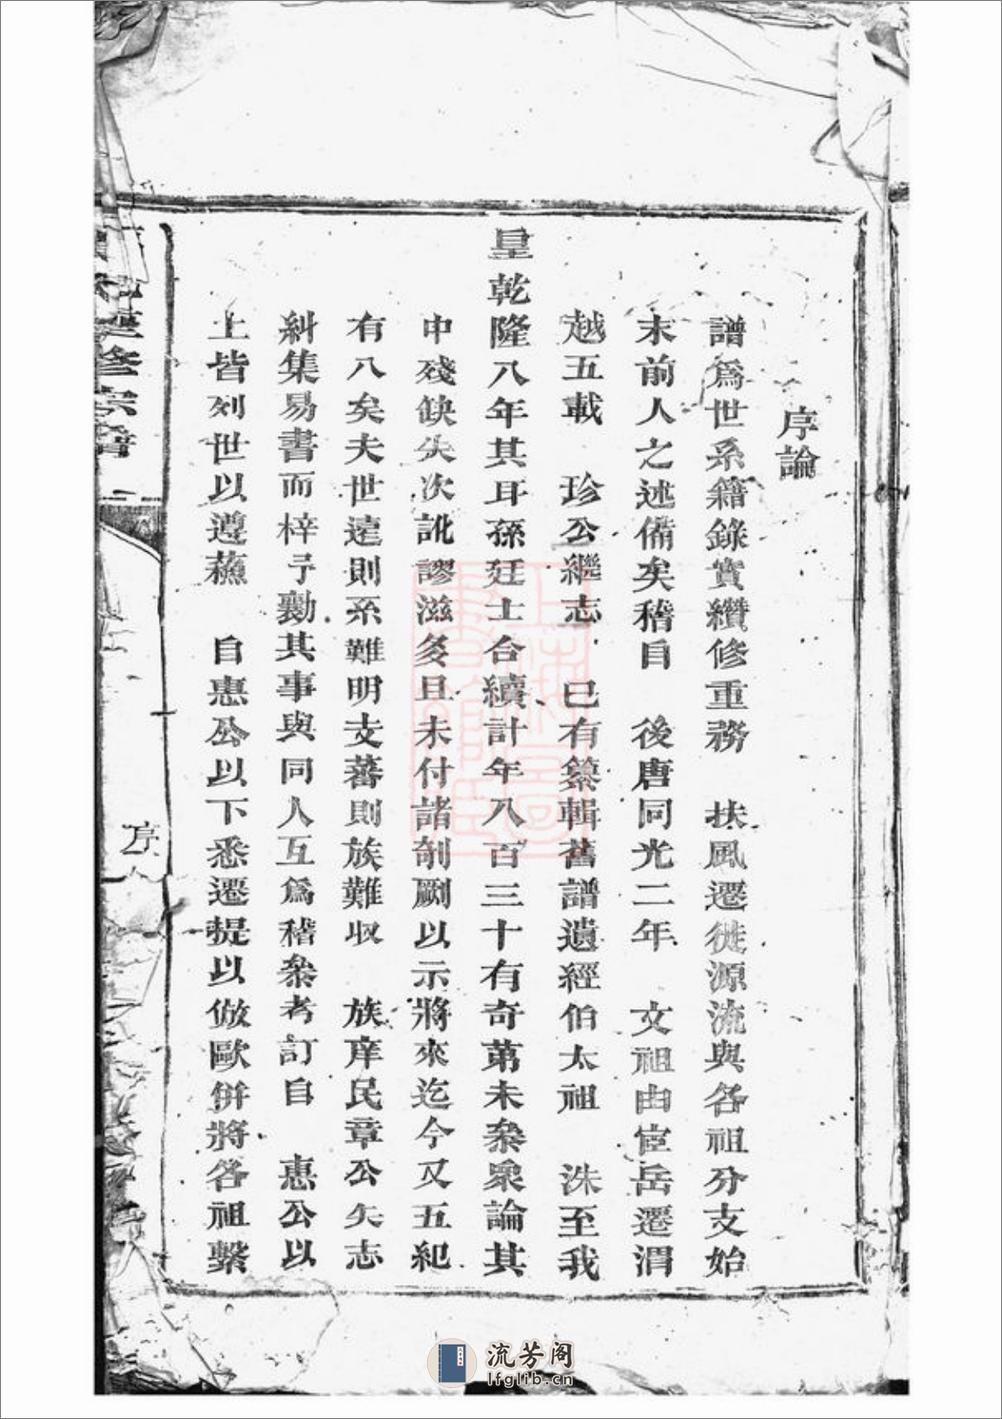 序論
譜爲世系籍錄實纘修重務 扶風遷徙源流與各祖分支始
末前人之述備矣稽自 後唐同光二年 文祖由宦岳遷渭
越五載 珍公繼志 已有纂輯舊譜遺經伯太祖 洙至我
皇乾隆八年其耳孫廷士合續計年八百三十有奇第未叅衆論其
中殘缺失次訛謬滋多且未付諸剞劂以示將來迄今又五紀
有八矣夫世遠則系難明支蕃則族難収 族庠民章公矢志
糾集易書而梓予勷其事與同人互爲稽叅考訂自 惠公以
上皆列世以遵蘓 自惠公以下悉遷提以倣歐併將各祖繫
修宗譜
序
流芳阁
lfglib.cn